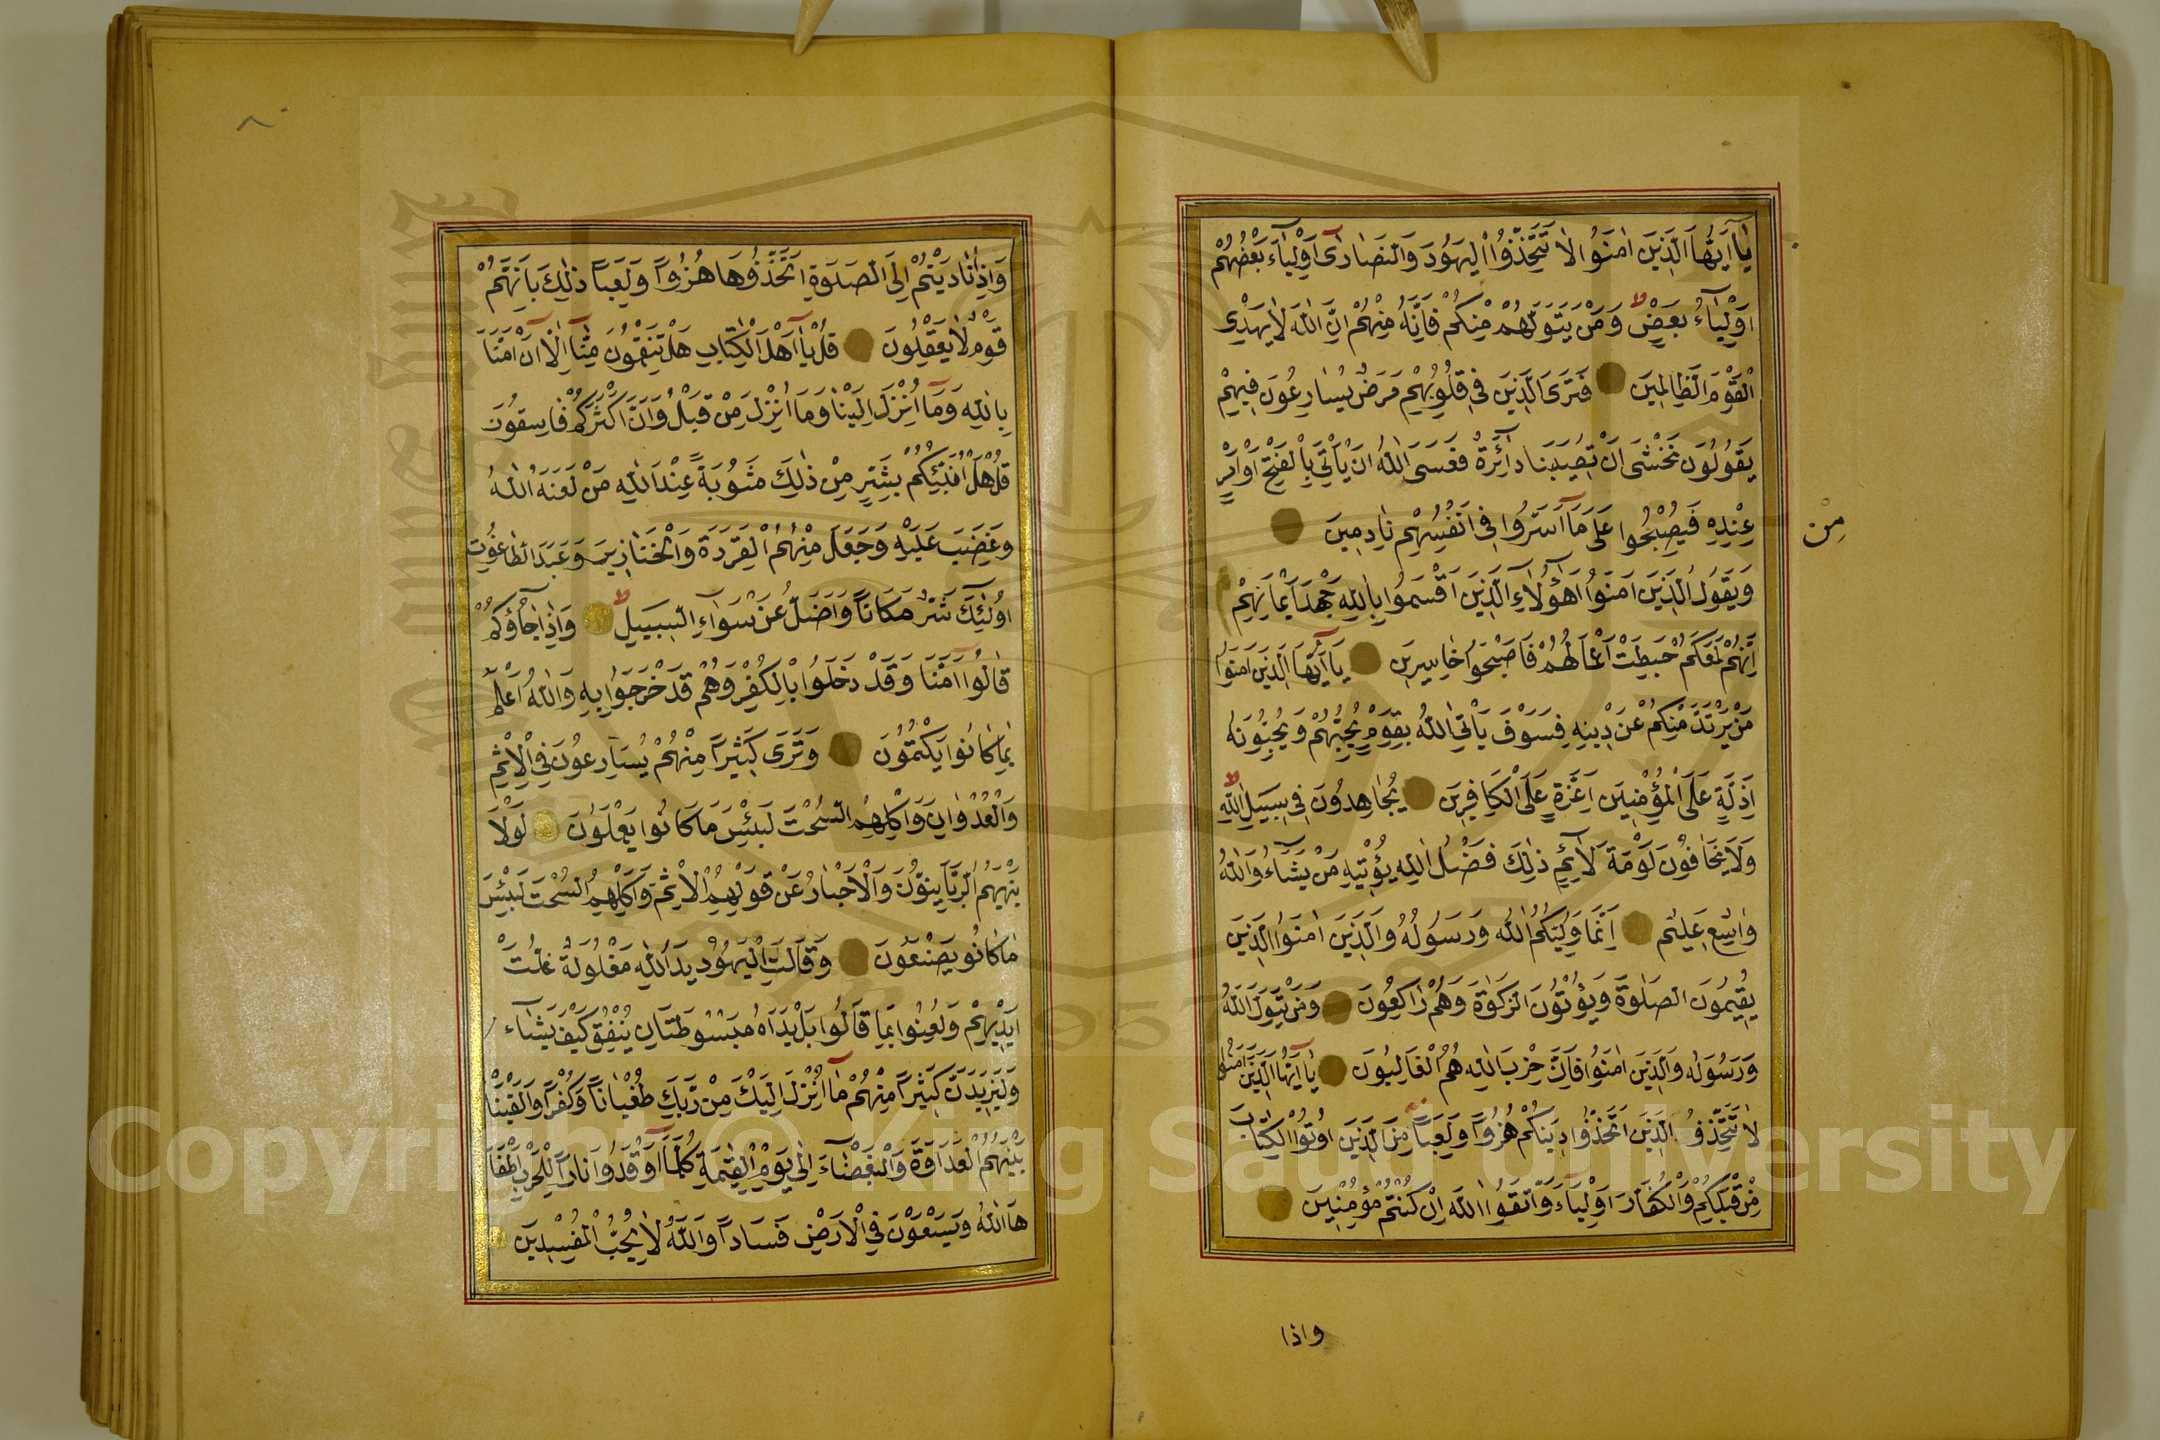 يٰٓا اَيُّهَا الَّذِينَ اٰمَنُوا لَا تَتَّخِذُوا الْيَهُودَ وَالنَّصَارٰٓى اَوْلِيَاءَ بَعْضُهُمْ
اَوْلِيَاءُ بَعْضٍ ط وَمَنْ يَتَوَلَّهُمْ مِنْكُمْ فَاِنَّهُ مِنْهُمْ اِنَّ اللهَ لَا يَهْدِى
الْقَوْمَ الظَّالِمِينَ فَتَرَى الَّذِينَ فِى قُلُوبِهِمْ مَرَضٌ يُسَارِعُونَ فِيهِمْ
يَقُولُونَ نَخْشٰى اَنْ تُصِيبَنَا دَآئِرَةٌ فَعَسَى اللهُ اَنْ يَأْتِىَ بِالْفَتْحِ اَوْ اَمْرٍ
مِنْ
عِنْدِهِ فَيُصْبِحُوا عَلٰى مَآ اَسَرُّوا فِى اَنْفُسِهِمْ نَادِمِينَ
وَيَقُولُ الَّذِينَ اٰمَنُوا اَهٰٓؤُلَاءِ الَّذِينَ اَقْسَمُوا بِاللهِ جَهْدَ اَيْمَانِهِمْ
اِنَّهُمْ لَمَعَكُمْ حَبِطَتْ اَعْمَالُهُمْ فَاَصْبَحُوا خَاسِرِينَ يَآ اَيُّهَا الَّذِينَ اٰمَنُوا
مَنْ يَرْتَدَّ مِنْكُمْ عَنْ دِينِهِ فَسَوْفَ يَأْتِى اللهُ بِقَوْمٍ يُحِبُّهُمْ وَيُحِبُّونَهُ
اَذِلَّةٍ عَلَى الْمُؤْمِنِينَ اَعِزَّةٍ عَلَى الْكَافِرِينَ يُجَاهِدُونَ فِى سَبِيلِ اللهِ ط
وَلَا يَخَافُونَ لَوْمَةَ لَآئِمٍ ذٰلِكَ فَضْلُ اللهِ يُؤْتِيهِ مَنْ يَشَاءُ وَاللهُ
وَاسِعٌ عَلِيمٌ اِنَّمَا وَلِيُّكُمُ اللهُ وَرَسُولُهُ وَالَّذِينَ اٰمَنُوا الَّذِينَ
يُقِيمُونَ الصَّلٰوةَ وَيُؤْتُونَ الزَّكٰوةَ وَهُمْ رَاكِعُونَ وَمَنْ يَتَوَلَّ اللهَ
وَرَسُولَهُ وَالَّذِينَ اٰمَنُوا فَاِنَّ حِزْبَ اللهِ هُمُ الْغَالِبُونَ يٰٓا اَيُّهَا الَّذِينَ اٰمَنُوا
لَا تَتَّخِذُوا الَّذِينَ اتَّخَذُوا دِينَكُمْ هُزُوًا وَلَعِبًا مِنَ الَّذِينَ اُوتُوا الْكِتَابَ
مِنْ قَبْلِكُمْ وَالْكُفَّارَ اَوْلِيَاءَ وَاتَّقُوا اللهَ اِنْ كُنْتُمْ مُؤْمِنِينَ
واذا
٨
وَاِذَا نَادَيْتُمْ اِلَى الصَّلٰوةِ اتَّخَذُوهَا هُزُوًا وَلَعِبًا ذٰلِكَ بِاَنَّهُمْ
قَوْمٌ لَا يَعْقِلُونَ قُلْ يَآ اَهْلَ الْكِتَابِ هَلْ تَنْقِمُونَ مِنَّآ اِلَّا اَنْ اٰمَنَّا
بِاللهِ وَمَآ اُنْزِلَ اِلَيْنَا وَمَا اُنْزِلَ مِنْ قَبْلُ وَاَنَّ اَكْثَرَكُمْ فَاسِقُونَ
قُلْ هَلْ اُنَبِّئُكُمْ بِشَرٍّ مِنْ ذٰلِكَ مَثُوبَةً عِنْدَ اللهِ مَنْ لَعَنَهُ اللهُ
وَغَضِبَ عَلَيْهِ وَجَعَلَ مِنْهُمُ الْقِرَدَةَ وَالْخَنَازِيرَ وَعَبَدَ الطَّاغُوتَ
اُولٰٓئِكَ شَرٌّ مَكَانًا وَاَضَلُّ عَنْ سَوَاءِ السَّبِيلِ ط وَاِذَا جَاؤُكُمْ
قَالُوا اٰمَنَّا وَقَدْ دَخَلُوا بِالْكُفْرِ وَهُمْ قَدْ خَرَجُوا بِهِ وَاللهُ اَعْلَمُ
بِمَا كَانُوا يَكْتُمُونَ وَتَرٰى كَثِيرًا مِنْهُمْ يُسَارِعُونَ فِى الْاِثْمِ
وَالْعُدْوَانِ وَاَكْلِهِمُ السُّحْتَ لَبِئْسَ مَا كَانُوا يَعْمَلُونَ لَوْلَا
يَنْهٰيهُمُ الرَّبَّانِيُّونَ وَالْاَحْبَارُ عَنْ قَوْلِهِمُ الْاِثْمَ وَاَكْلِهِمُ السُّحْتَ لَبِئْسَ
مَا كَانُو يَصْنَعُونَ وَقَالَتِ الْيَهُودُ يَدُ اللهِ مَغْلُولَةٌ غُلَّتْ
اَيْدِيهِمْ وَلُعِنُوا بِمَا قَالُوا بَلْ يَدَاهُ مَبْسُوطَتَانِ يُنْفِقُ كَيْفَ يَشَاءُ
وَلَيَزِيدَنَّ كَثِيرًا مِنْهُمْ مَآ اُنْزِلَ اِلَيْكَ مِنْ رَبِّكَ طُغْيَانًا وَكُفْرًا وَاَلْقَيْنَا
بَيْنَهُمُ الْعَدَاوَةَ وَالْبَغْضَآءَ اِلٰى يَوْمِ الْقِيٰمَةِ كُلَّمَآ اَوْقَدُوا نَارًا لِلْحَرْبِ اَطْفَا
هَا اللهُ وَيَسْعَوْنَ فِى الْاَرْضِ فَسَادًا وَاللهُ لَا يُحِبُّ الْمُفْسِدِينَ
Copyright © King Saud University
1957